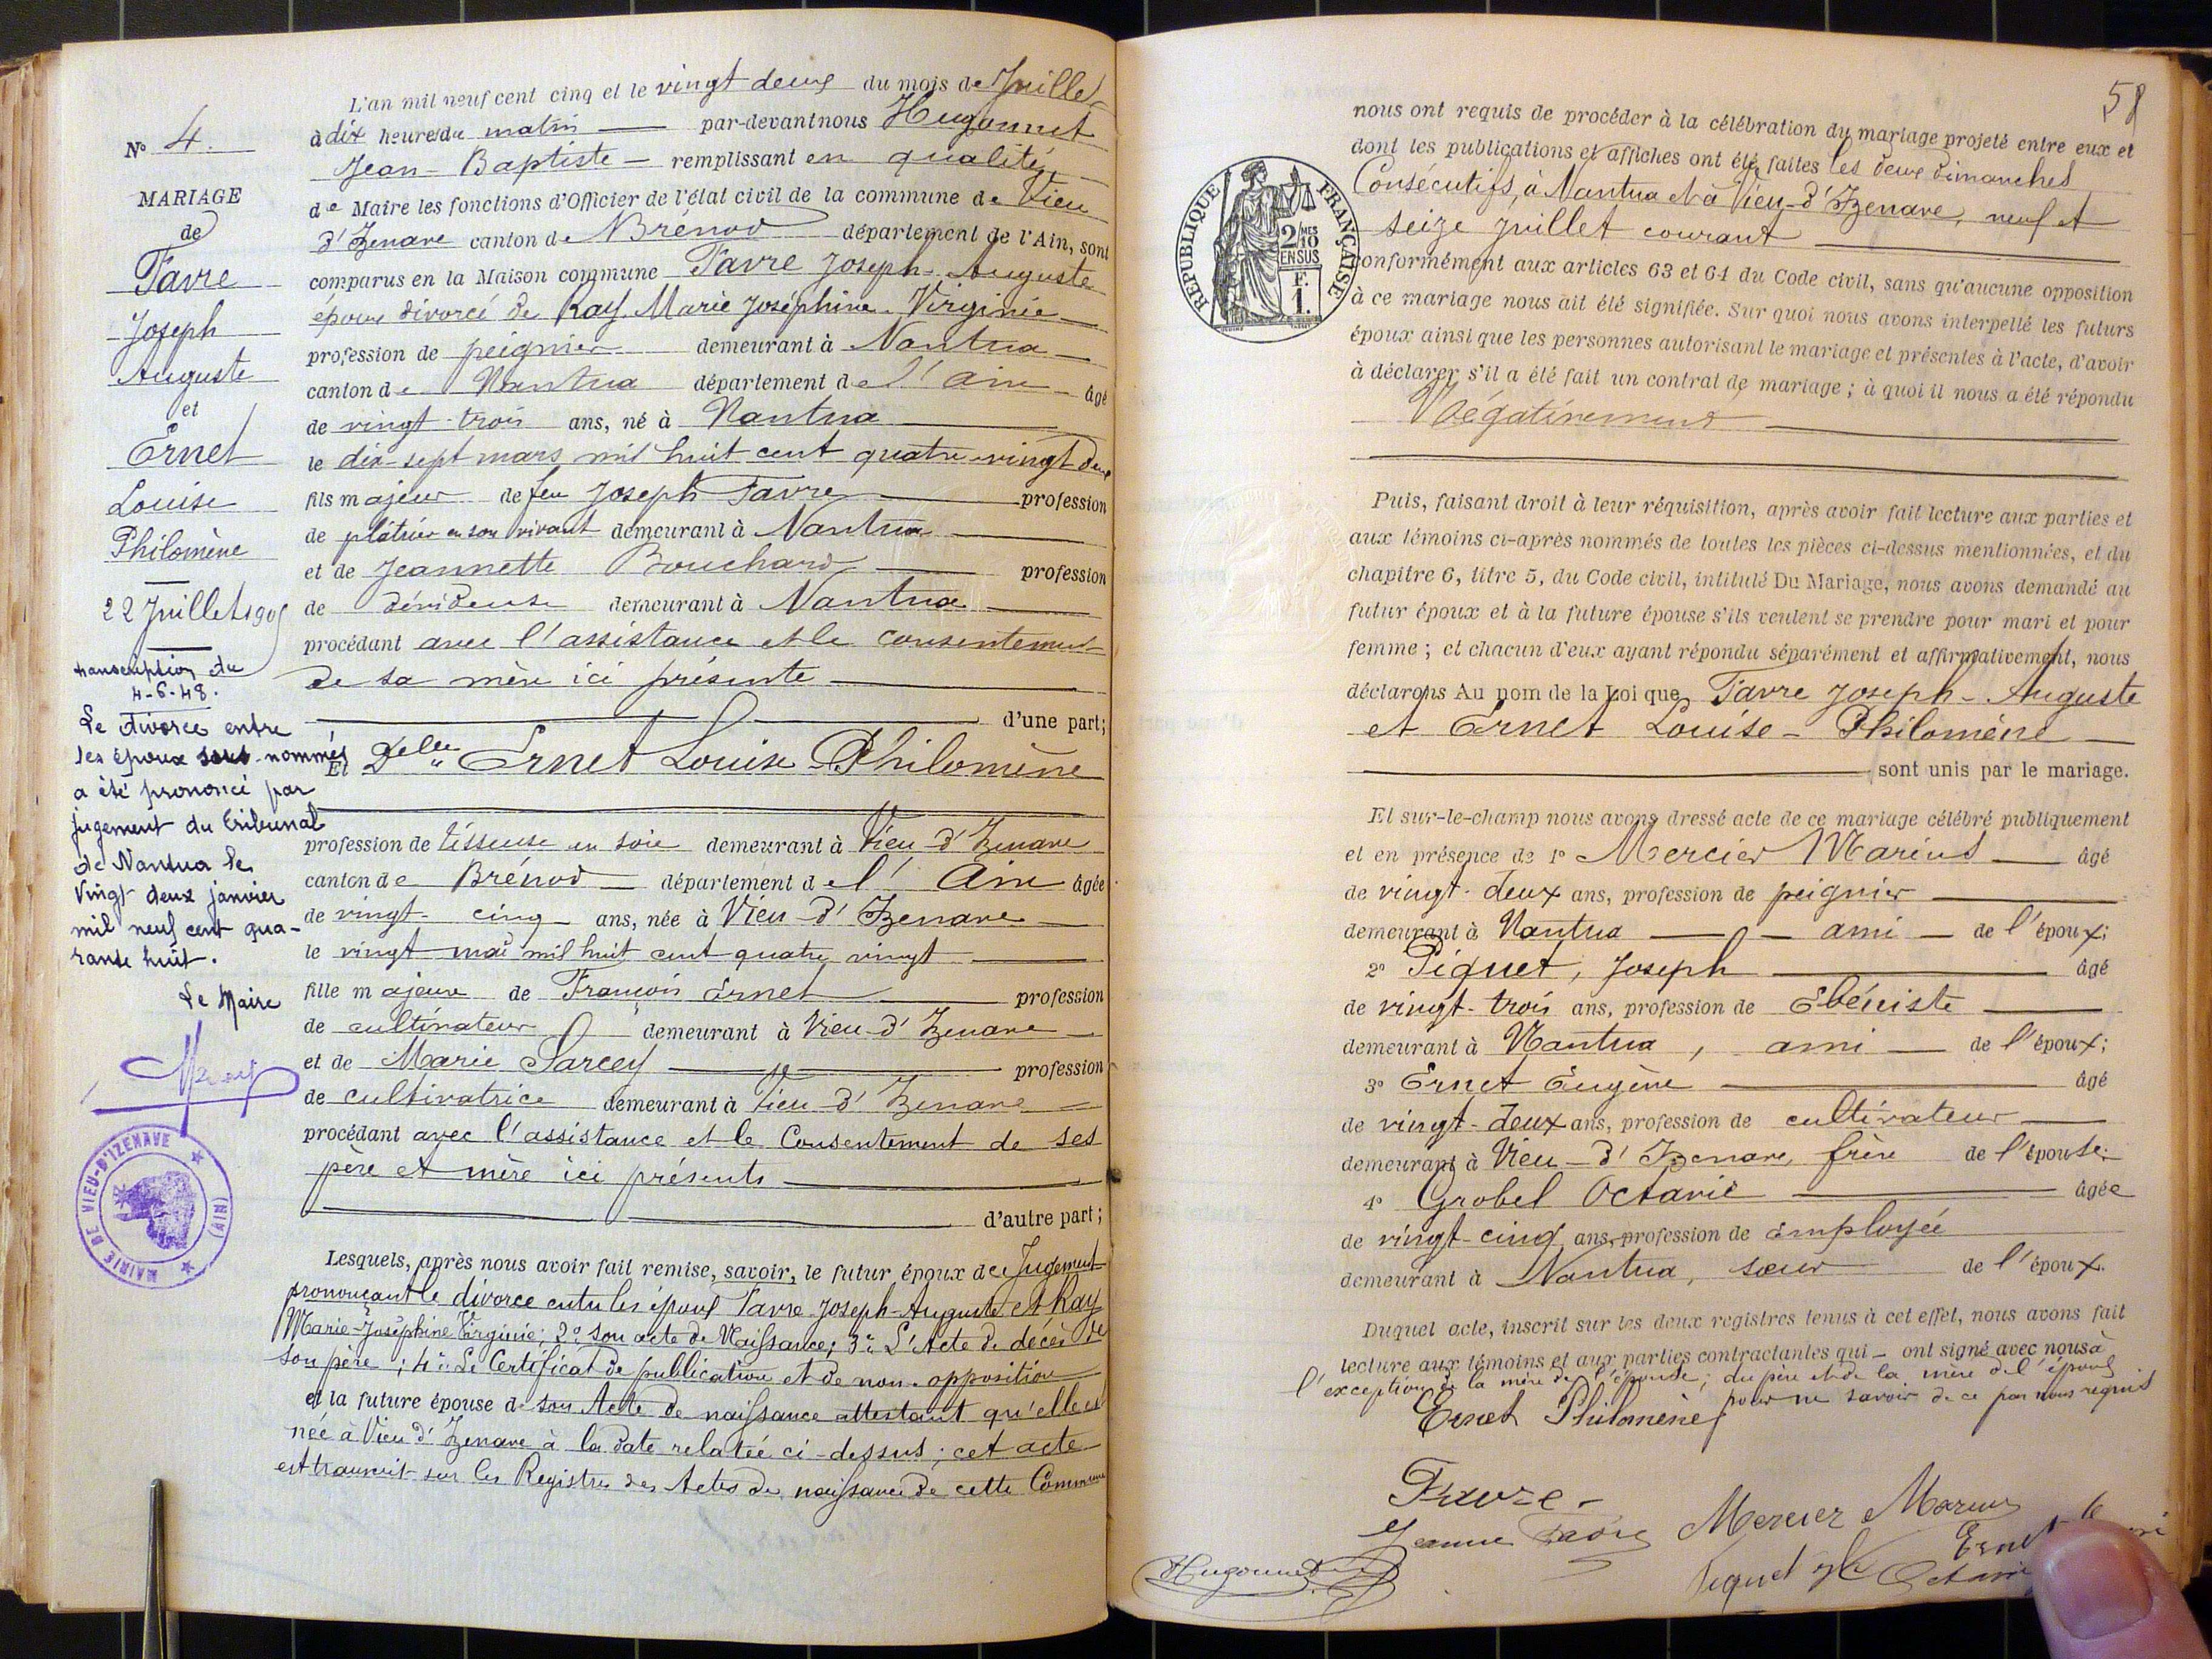 N° 4.
MARIAGE
de
Favre
Joseph
Auguste
et
Ernet
Louise
Philomène
22 Juillet 1905
transcription du
4-6-48.
Le divorce entre
les époux sous-nommés
a été prononcé par
jugement du tribunal
de Nantua le
vingt deux janvier
mil neuf cent qua-
rante huit.
Le Maire
MAIRIE DE VIEU-D'IZENAVE (AIN)
L'an mil neuf cent cinq et le vingt deux du mois de Juillet
à dix heures du matin par-devant nous Hugonnet
Jean-Baptiste remplissant en qualité
de Maire les fonctions d'Officier de l'état civil de la commune de Vieu
d'Izenave canton de Brénod département de l'Ain, sont
comparus en la Maison commune Favre Joseph-Auguste
époux divorcé de Ray Marie Joséphine Virginie
profession de peignier demeurant à Nantua
canton de Nantua département de l'Ain âgé
de vingt-trois ans, né à Nantua
le dix-sept mars mil huit cent quatre-vingt deux
fils majeur de feu Joseph Favre profession
de plâtrier en son vivant demeurant à Nantua
et de Jeannette Bouchard profession
de dévideuse demeurant à Nantua
procédant avec l'assistance et le consentement
de sa mère ici présente
d'une part;
Et Delle Ernet Louise Philomène
profession de tisseuse en soie demeurant à Vieu-d'Izenave
canton de Brénod département de l'Ain âgée
de vingt-cinq ans, née à Vieu-d'Izenave
le vingt mai mil huit cent quatre vingt
fille majeure de François Ernet profession
de cultivateur demeurant à Vieu-d'Izenave
et de Marie Sarcey profession
de cultivatrice demeurant à Vieu-d'Izenave
procédant avec l'assistance et le Consentement de ses
père et mère ici présents
d'autre part;
Lesquels, après nous avoir fait remise, savoir, le futur époux de Jugement
prononçant le divorce entre les époux Favre Joseph-Auguste et Ray
Marie-Joséphine Virginie; 2° son acte de Naissance; 3° L'Acte de décès de
son père; 4° Le Certificat de publication et de non-opposition
et la future épouse de son Acte de naissance attestant qu'elle est
née à Vieu d'Izenave à la date relatée ci-dessus; cet acte
est transcrit sur les Registres des Actes de naissance de cette Commune
58
nous ont requis de procéder à la célébration du mariage projeté entre eux et
dont les publications et affiches ont été faites les deux dimanches
Consécutifs, à Nantua et à Vieu-d'Izenave, neuf et
seize juillet courant
RÉPUBLIQUE FRANÇAISE
2/10 MES
EN SUS
F.
1.
conformément aux articles 63 et 64 du Code civil, sans qu'aucune opposition
à ce mariage nous ait été signifiée. Sur quoi nous avons interpellé les futurs
époux ainsi que les personnes autorisant le mariage et présentes à l'acte, d'avoir
à déclarer s'il a été fait un contrat de mariage; à quoi il nous a été répondu
Négativement
Puis, faisant droit à leur réquisition, après avoir fait lecture aux parties et
aux témoins ci-après nommés de toutes les pièces ci-dessus mentionnées, et du
chapitre 6, titre 5, du Code civil, intitulé Du Mariage, nous avons demandé au
futur époux et à la future épouse s'ils veulent se prendre pour mari et pour
femme; et chacun d'eux ayant répondu séparément et affirmativement, nous
déclarons Au nom de la Loi que Favre Joseph-Auguste
et Ernet Louise-Philomène
sont unis par le mariage.
Et sur-le-champ nous avons dressé acte de ce mariage célébré publiquement
et en présence de 1° Mercier Marius âgé
de vingt-deux ans, profession de peignier
demeurant à Nantua ami de l'époux;
2° Piquet, Joseph âgé
de vingt-trois ans, profession de Ebéniste
demeurant à Nantua, ami de l'époux;
3° Ernet Eugène âgé
de vingt-deux ans, profession de cultivateur
demeurant à Vieu-d'Izenave, frère de l'épouse;
4° Grobel Octavie âgée
de vingt-cinq ans, profession de employée
demeurant à Nantua, sœur de l'époux.
Duquel acte, inscrit sur les deux registres tenus à cet effet, nous avons fait
lecture aux témoins et aux parties contractantes qui ont signé avec nous à
l'exception de la mère de l'épouse; du père et de la mère de l'époux
pour ne savoir de ce par nous requis
Ernet Philomène
Favre
Jeanne Favre Mercier Marius
Ernet
Hugonnet Piquet Octavie